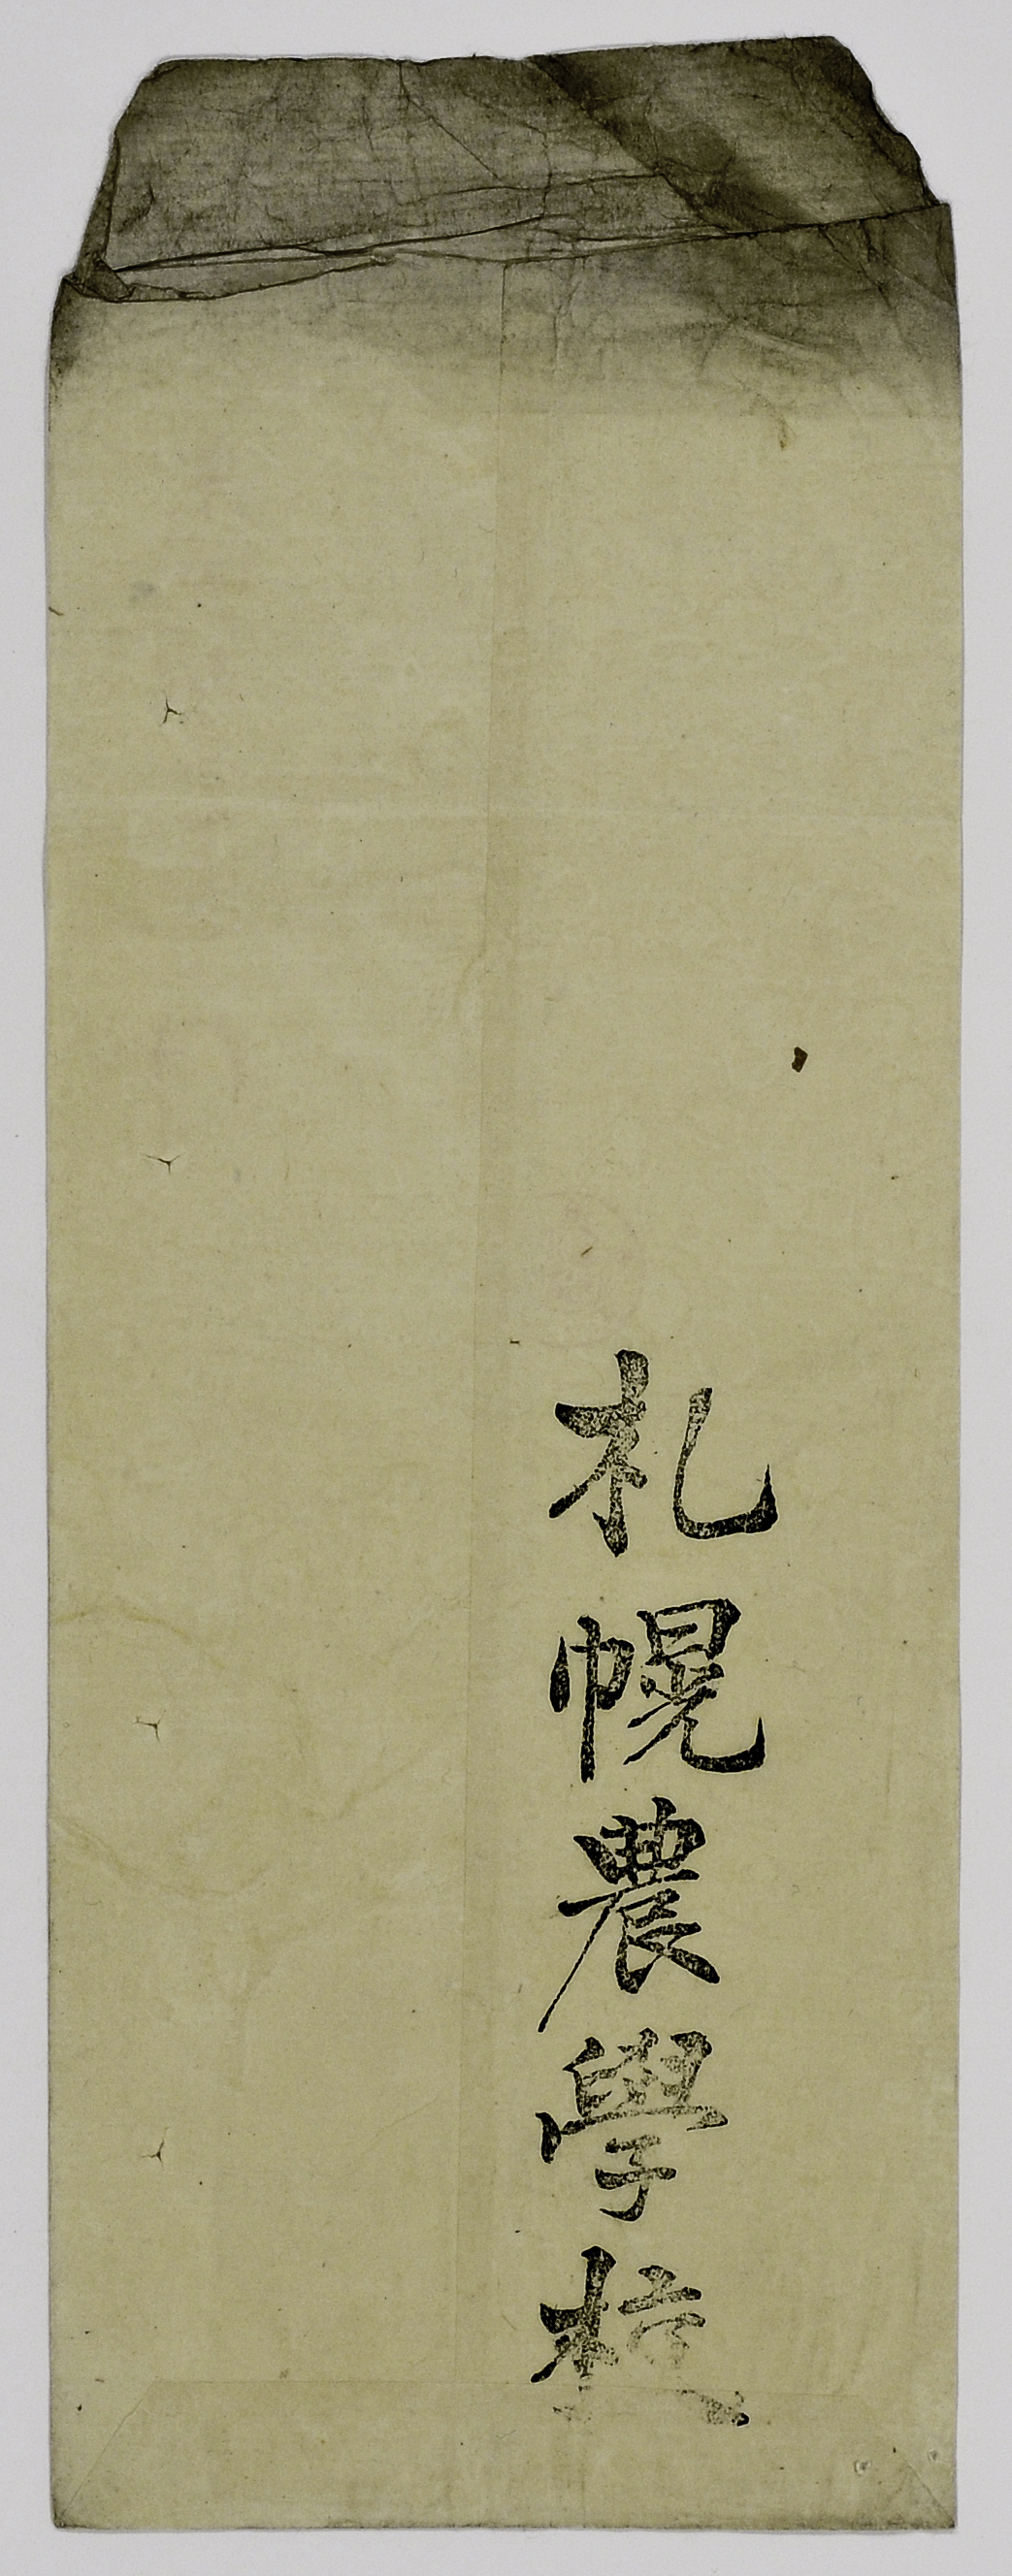 札幌農學校